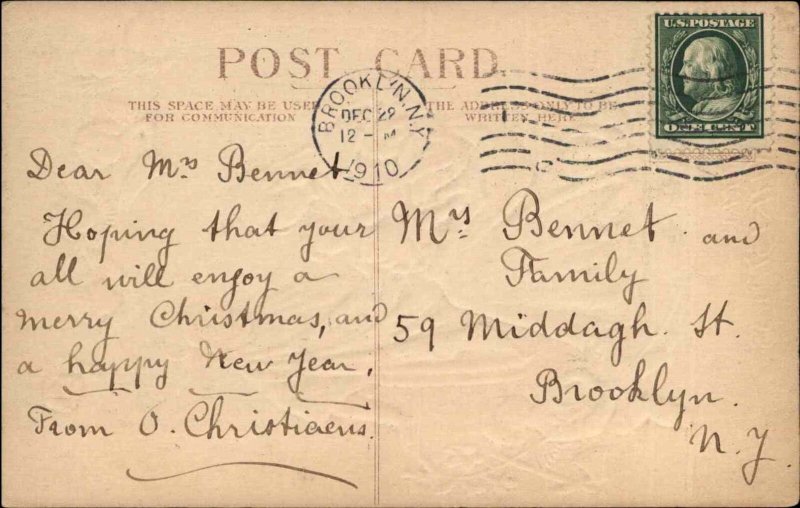 POST CARD
THIS SPACE MAY BE USED
FOR COMMUNICATION
THE ADDRESS ONLY TO BE
WRITTEN HERE
BROOKLYN, N.Y.
DEC 29
12 - M
1910
U.S. POSTAGE
ONE CENT
Dear Mrs Bennet
Hoping that your
all will enjoy a
merry Christmas, and
a happy New Year,
From O. Christiaens.
Mrs Bennet and
Family
59 Middagh. St.
Brooklyn.
N. Y